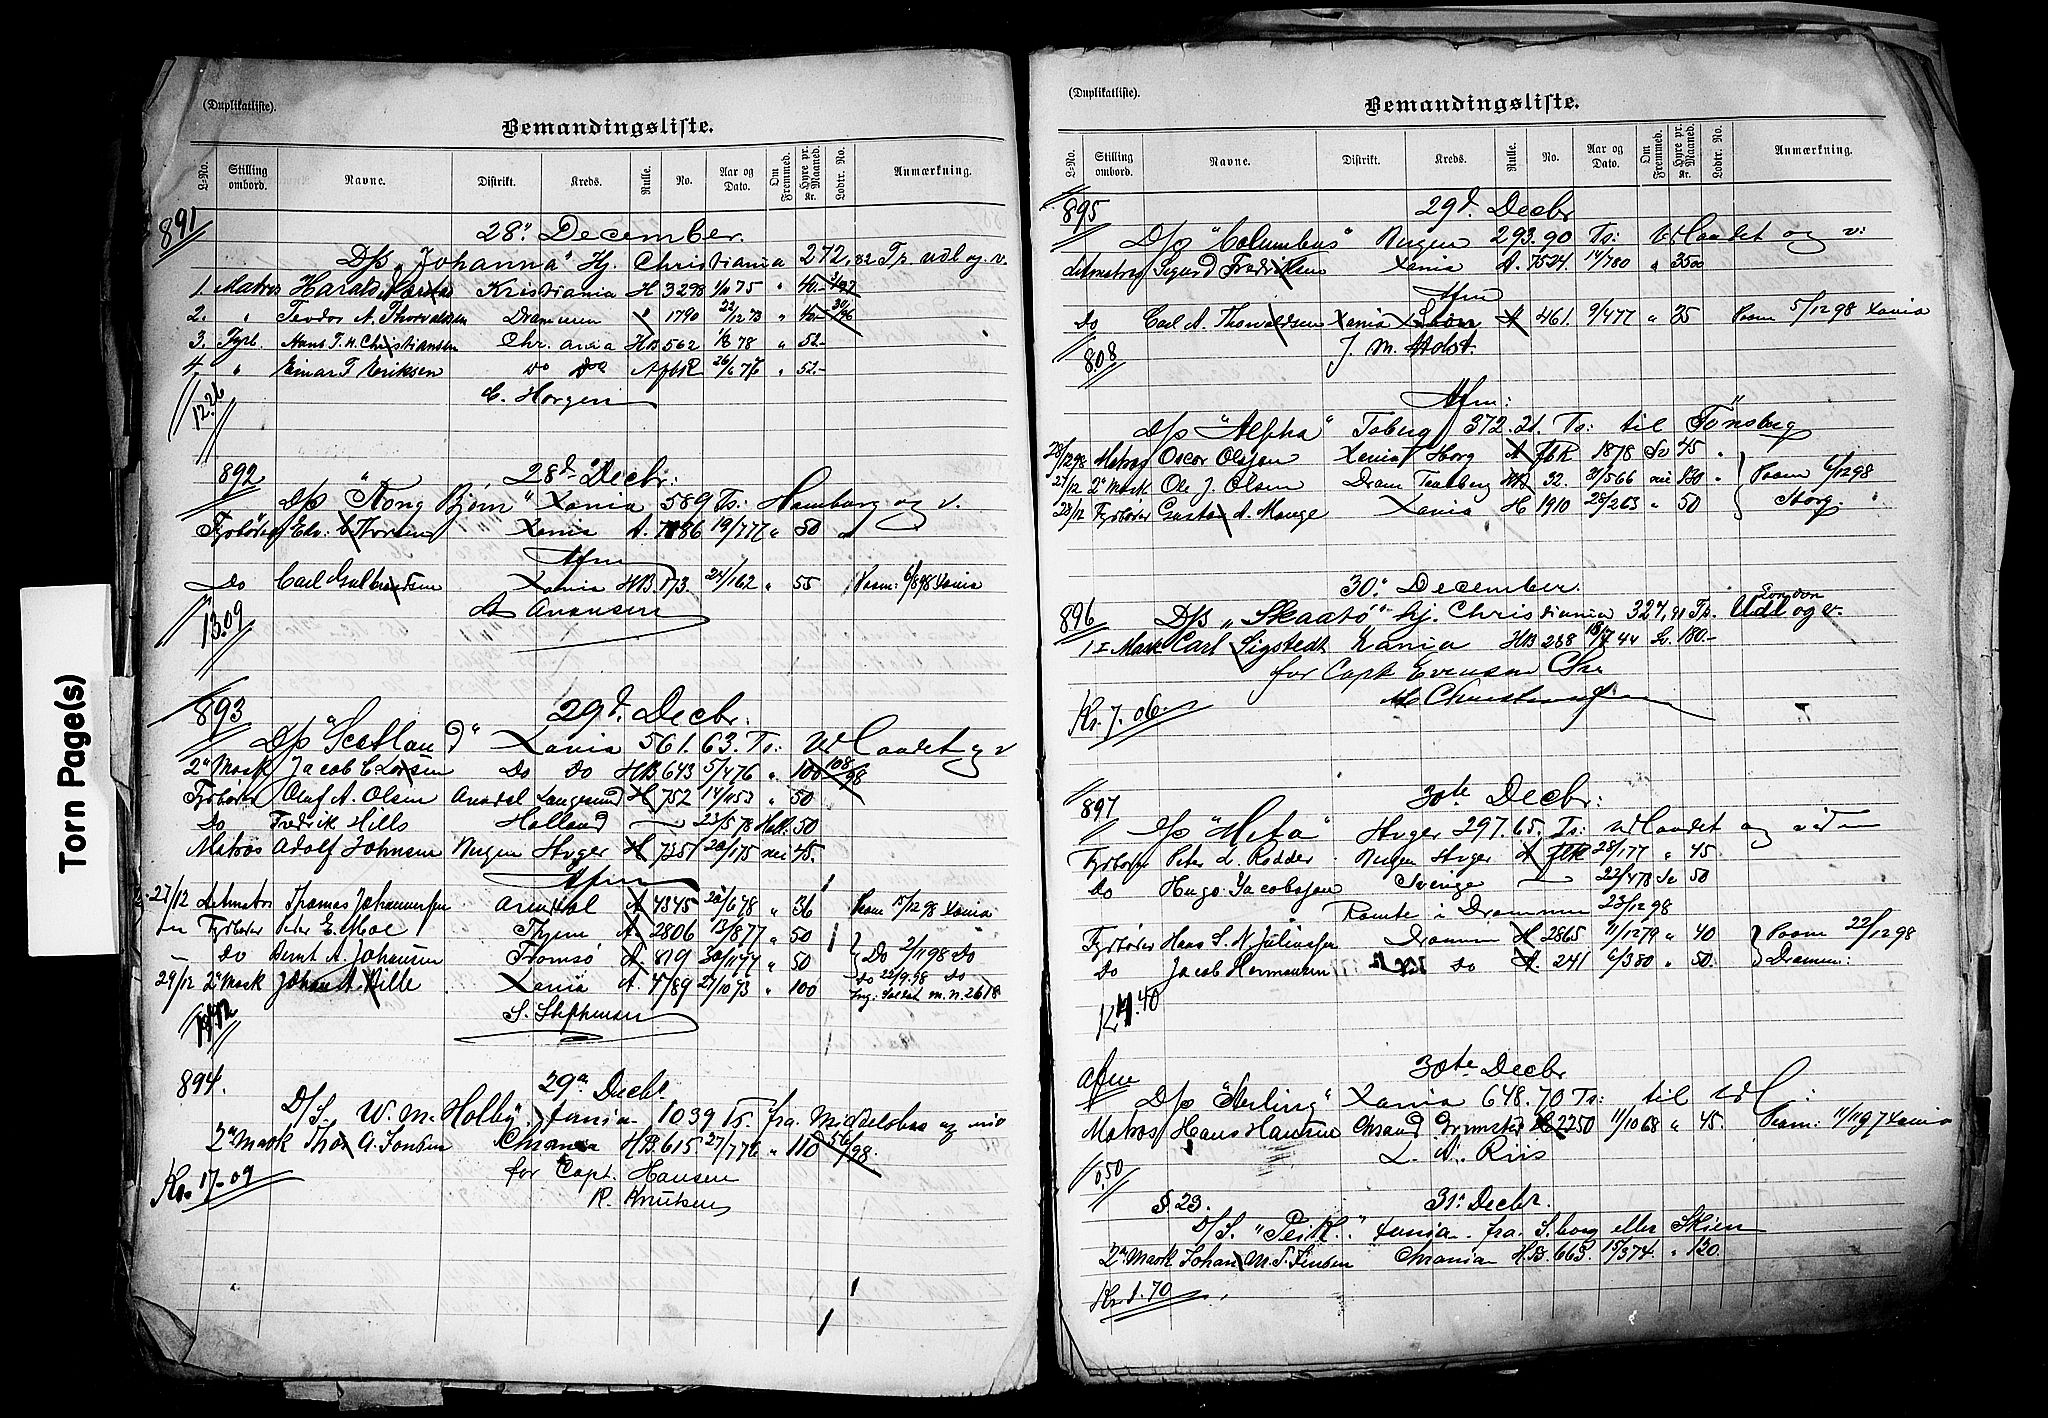 Torn Page(s)
(Duplikatliste).
Bemandingsliste.
L-No. Stilling ombord. Navne. Distrikt. Kreds. Rulle. No. Aar og Dato. Om Fremmed. Hyre pr. Maaned. Kr. Lodtr. No. Anmærkning.
891 28' December.
D/s "Johanna" Hj. Christiania 272,82 T. udl og. v.
1 Matros Harald Kristiania H 3298 1/10 75 " 40.-
2. " Teodor A. Thorvaldsen Drammen " 1790 22/12 73 " 45.-
3. Fyrb. Hans T. H. Christiansen Chr. ania HB 562 1/8 78 " 52.-
4. " Einar T. Eriksen do do AfbR 26/6 76 " 52.-
C. Horgen
12.26
892 28d Decbr:
D/s "Kong Bjørn" Xania 589 Ts: Hamburg og v.
Fyrbøder Edv: C. Iversen Xania A. 7186 19/7 77 " 50
Afm
Do Carl Gulbrandsen Xania HB 173. 24/1 62 " 55 Paam: 6/8 98 Xania
A Aronsen
13.09
893 29d. Decbr.
D/s "Scotland" Xania 561.63. Ts: Udlandet og v
2n Mask Jacob C. Larsen Do Do HB 643 5/4 76 " 100 108/98
Fyrbøder Oluf A. Olsen Arendal Langesund H 752 14/11 53 " 50
Do Fredrik Hills Holland — 23/5 78 Holl. 50
Matros Adolf Johnsen Bergen Stvger H 7257 20/1 75 nei 45.
Afm
27/12 Letmatros Thomas Johannesen Arendal A 4345 20/6 78 " 36 Paam 15/12 98 Xania
Fyrbøder Peder E. Moe Thjem A 2806 13/8 77 " 50
Do Bernt A. Johansen Tromsø A 819 30/11 77 " 50 Do 2/11 98 Do
29/12 2n Mask Johan A. Hille Xania A. 4789 27/10 73 " 100 Do 22/9.98 Do
m. n. 2618
S. Stephensen
894. 29n Decbr.
D/S. W. M. Holby. Xania 1039 Ts. fra Middelsbro og
2n Mask Thor A. Jensen Chrania HB 615 27/7 76 " 110 56/98.
for Capt. Hansen
R. Knutsen
Kr. 17-09
(Duplikatliste).
Bemandingsliste.
L-No. Stilling ombord. Navne. Distrikt. Kreds. Rulle. No. Aar og Dato. Om Fremmed. Hyre pr. Maaned. Kr. Lodtr. No. Anmærkning.
895 29d. Decbr
D/s "Columbus" Bergen 293.90 Ts: Udlandet og v:
Letmatros Sigurd Fredriksen Xania A. 7524 14/7 80 " 35 00
Afm
Do Carl A. Thorvaldsen Xania A 461. 9/4 77 " 35 Paam 5/12 98 Xania
J. M. Holst.
8.08
Afm:
D/s "Alpha" Tsberg 372.21. Ts: til Tönsberg
28/12 98 Matros Oscar Olssen Xania Horg A fbR 1878 Sv 45 "
27/12 2n Mask Ole J. Olsen Dram 32. 31/5 66 nei 130 " Paam 6/12 98
28/12 Fyrbøder Gustav A. Mange Xania H 1910 28/2 63 " 50
30' December.
896 D/s "Skaatö" hj. Christiania 327,91 T. London Udl og v.
1ste Mask Carl Sigstedt Xania HB 238 18/7 44 Sv. 180.-
for Capt Evensen
Kr. 7.06.
897 30te Decbr:
D/s "Meta" Stvger 297.65. Ts: Udlandet og viden
Fyrbøder Peter L. Rodder. Bergen Stvger A fbR 28/1 77 " 45.
Do Hugo Jacobssen Sverige — 22/4 78 Sv 50
Rømte i Drammen 23/12 98
Fyrbøder Hans S. N. Juliussen Drammen H 2865 11/12 79 " 40 Paam 22/12 98
Do Jacob Hermansen Do A. 241 6/3 80 " 50. Drammen:
Kr 4.40
Afm 30te Decbr
D/s "Sterling" Xania 648.70 Ts: til Udl:
Matros Hans Hansen Chrsand Grimstad 2250 11/10 68 " 45. Paam: 11/11 97 Xania
L. A. Riis
0.50
§ 23. 31' Decbr.
D/S. "Peik." Xania. fra S.borg eller Skien
2n Mask Johan M. T. Jensen Chrania HB. 663. 15/3 74. " 120.
Kr. 1.70